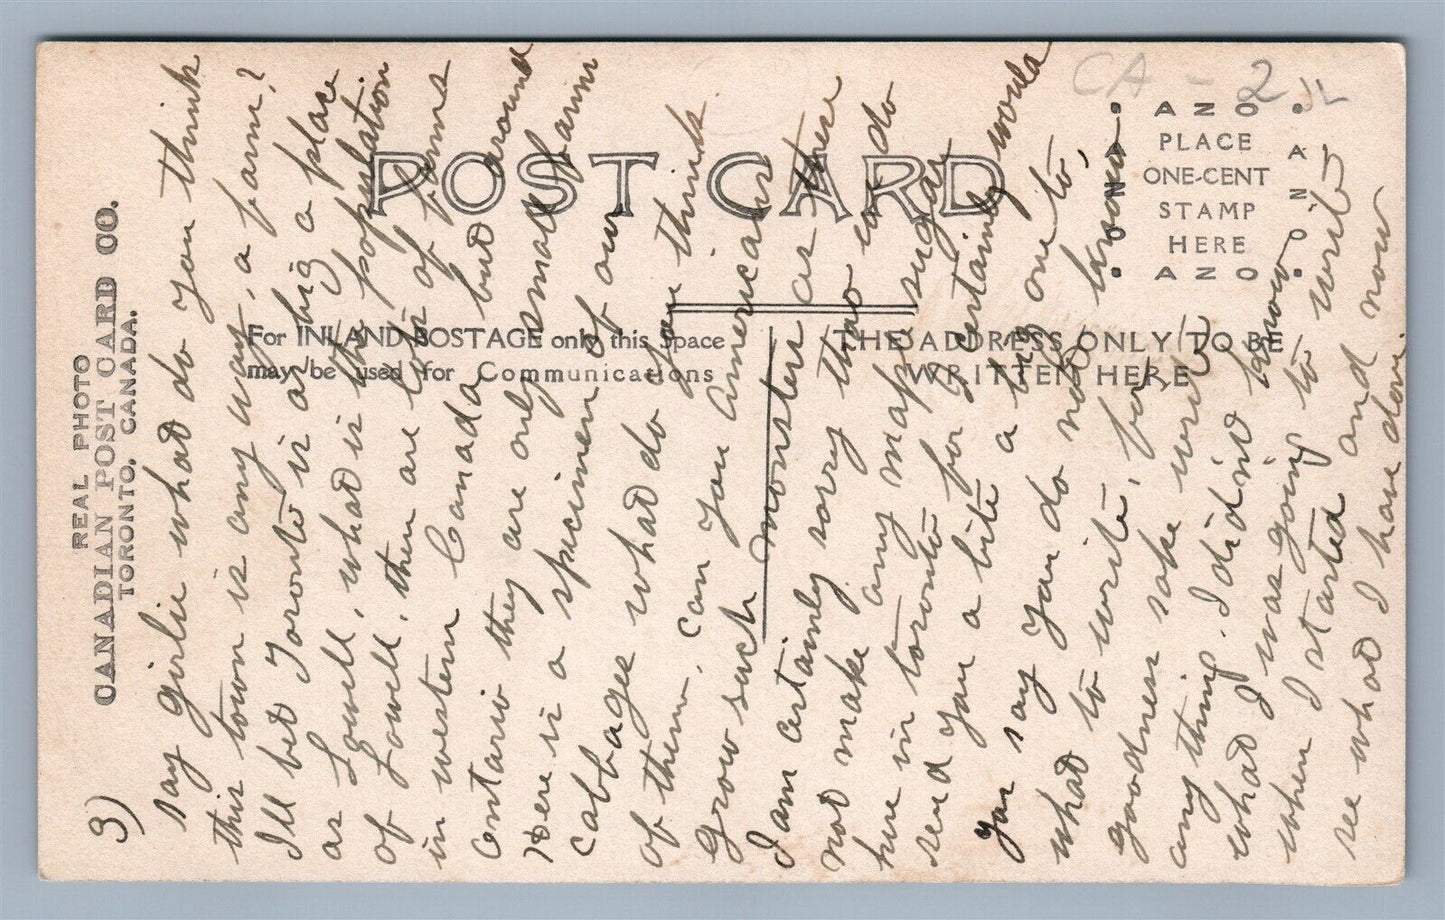 CA - 2 JL
REAL PHOTO
CANADIAN POST CARD CO.
TORONTO. CANADA.
POST CARD
For INLAND POSTAGE only this Space
may be used for Communications
THE ADDRESS ONLY TO BE
WRITTEN HERE
AZO
PLACE
ONE-CENT
STAMP
HERE
AZO
AZO
AZO
3)
say girlie what do you think
this town is any way, a farm?
I'll bet Toronto is as big a place
as Lowell, what is the population
of Lowell, there are lots of farms
in western Canada but around
Ontario they are only small farms
Here is a specimen of our
cabbages what do you think
of them. Can you Americans
grow such monsters as these
I am certainly sorry that we do
not make any maple sugar
here in toronto for I certainly would
send you a bite a big one to,
you say you do not know
what to write, for
goodness sake write
any thing. I didnt know
what I was going to write
when I started and now
see what I have don.